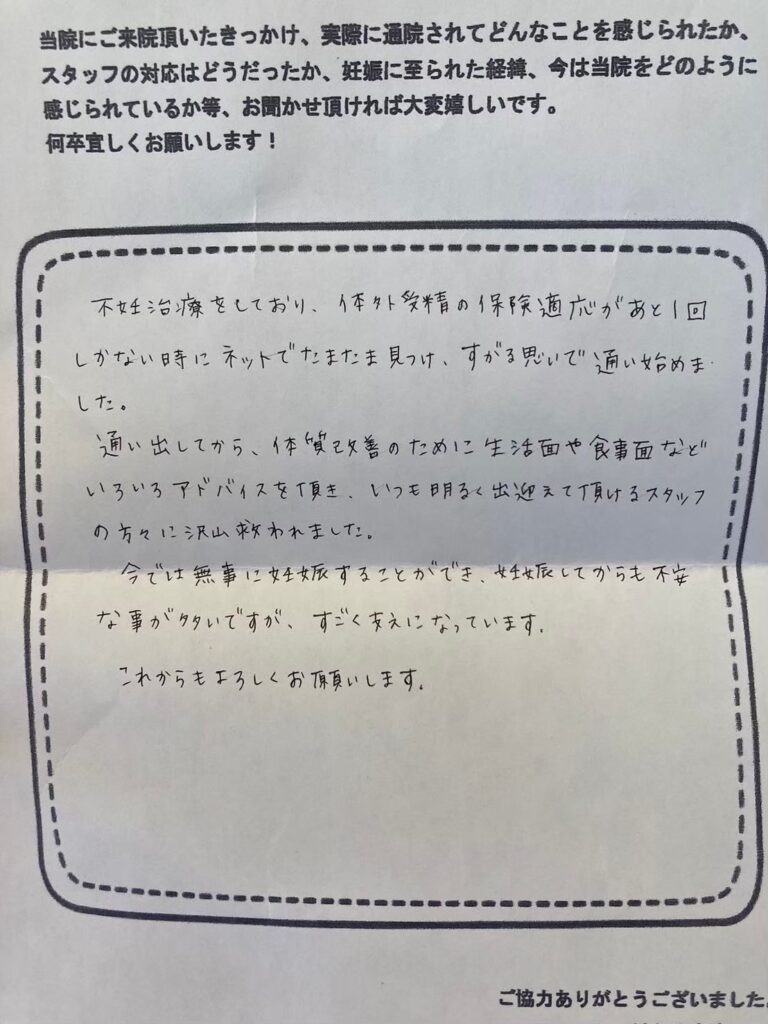 当院にご来院頂いたきっかけ、実際に通院されてどんなことを感じられたか、
スタッフの対応はどうだったか、妊娠に至られた経緯、今は当院をどのように
感じられているか等、お聞かせ頂ければ大変嬉しいです。
何卒宜しくお願いします！
不妊治療をしており、体外受精の保険適応があと1回
しかない時にネットでたまたま見つけ、すがる思いで通い始めま
した。
通い出してから、体質改善のために生活面や食事面など
いろいろアドバイスを頂き、いつも明るく出迎えて頂けるスタッフ
の方々に沢山救われました。
今では無事に妊娠することができ、妊娠してからも不安
な事が多いですが、すごく支えになっています。
これからもよろしくお願いします。
ご協力ありがとうございました。